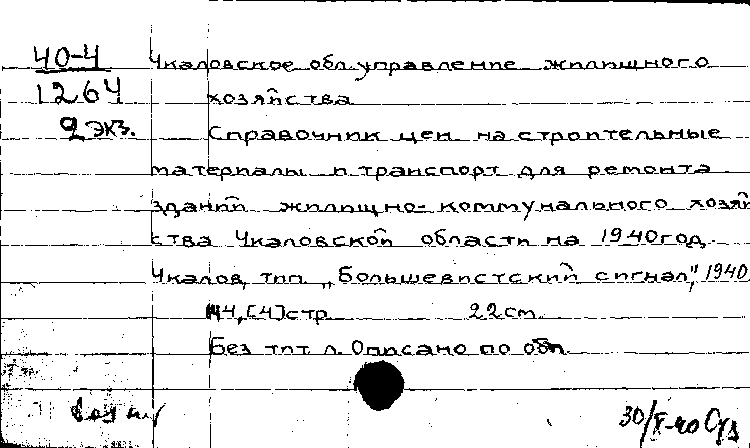 40-4
1264
2 экз.
Чкаловское обл. управление жилищного
хозяйства
Справочник цен на строительные
материалы и транспорт для ремонта
зданий жилищно-коммунального хозяй
ства Чкаловской области на 1940 год.
Чкалов, тип. „Большевистский сигнал", 1940
44, [4] стр. 22 см.
Без тит л. Описано по обл.
30/X-40